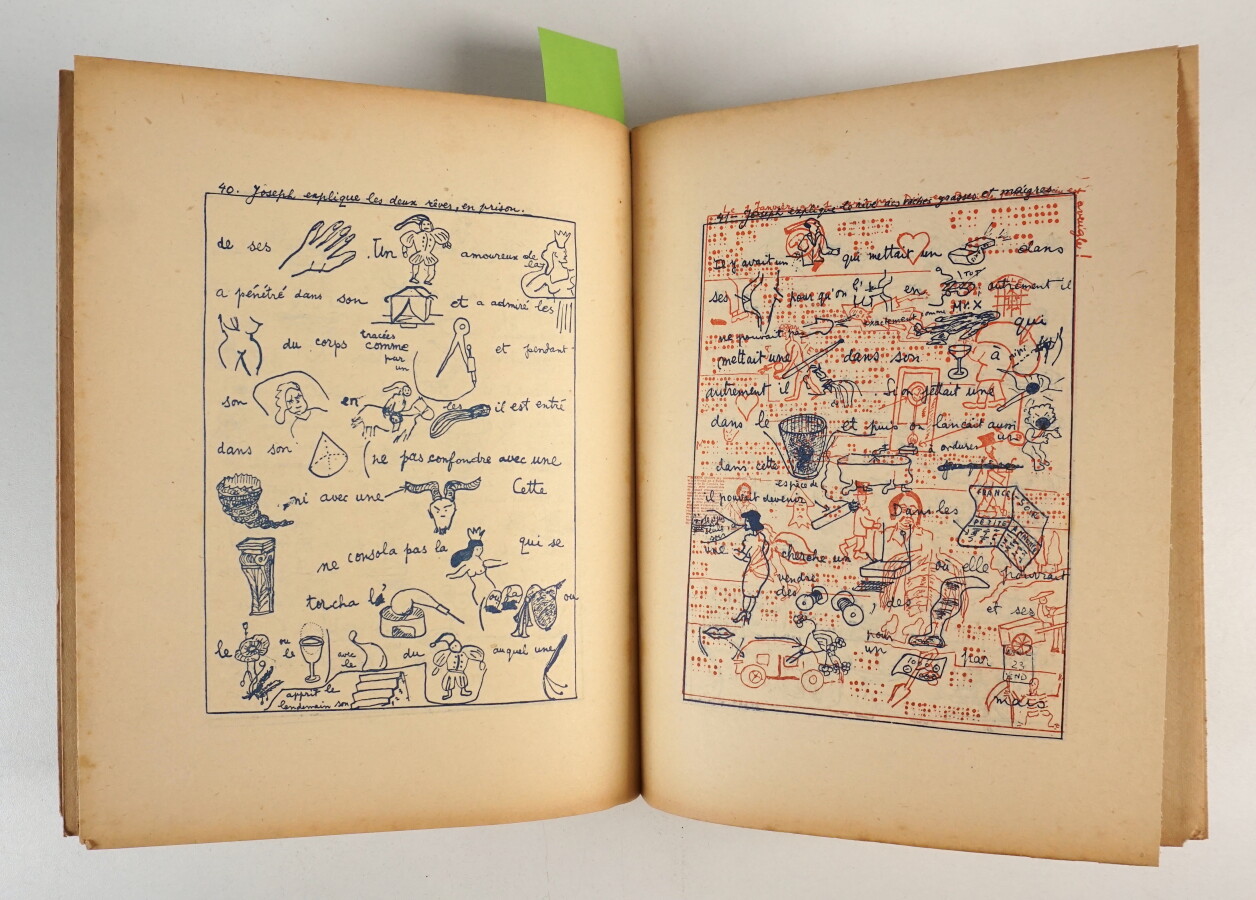 40. Joseph explique les deux rêves, en prison.
de ses . Un amoureux de la
a pénétré dans son et a admiré les
du corps tracées comme par un et pendant
son en les il est entré
dans son (ne pas confondre avec une
, ni avec une Cette
ne consola pas la qui se
torcha l' ou la ou
le ou le avec le du auquel une
apprit le lendemain son
41 - Joseph explique le rêve des vaches grasses et maigres.
Il y avait un qui mettait un dans
ses pour qu'on l' en autrement il
ne pouvait pas exactement comme Mr. X qui
mettait une dans son a
autrement il Si on jettait une
dans le et puis on lancait aussi une
dans cette à ordures
il pouvait devenir espèce de
Dans les
FRANCE SOIR
une cherche un où elle pourrait
vendre des , des et ses
pour un par
23
END
mais